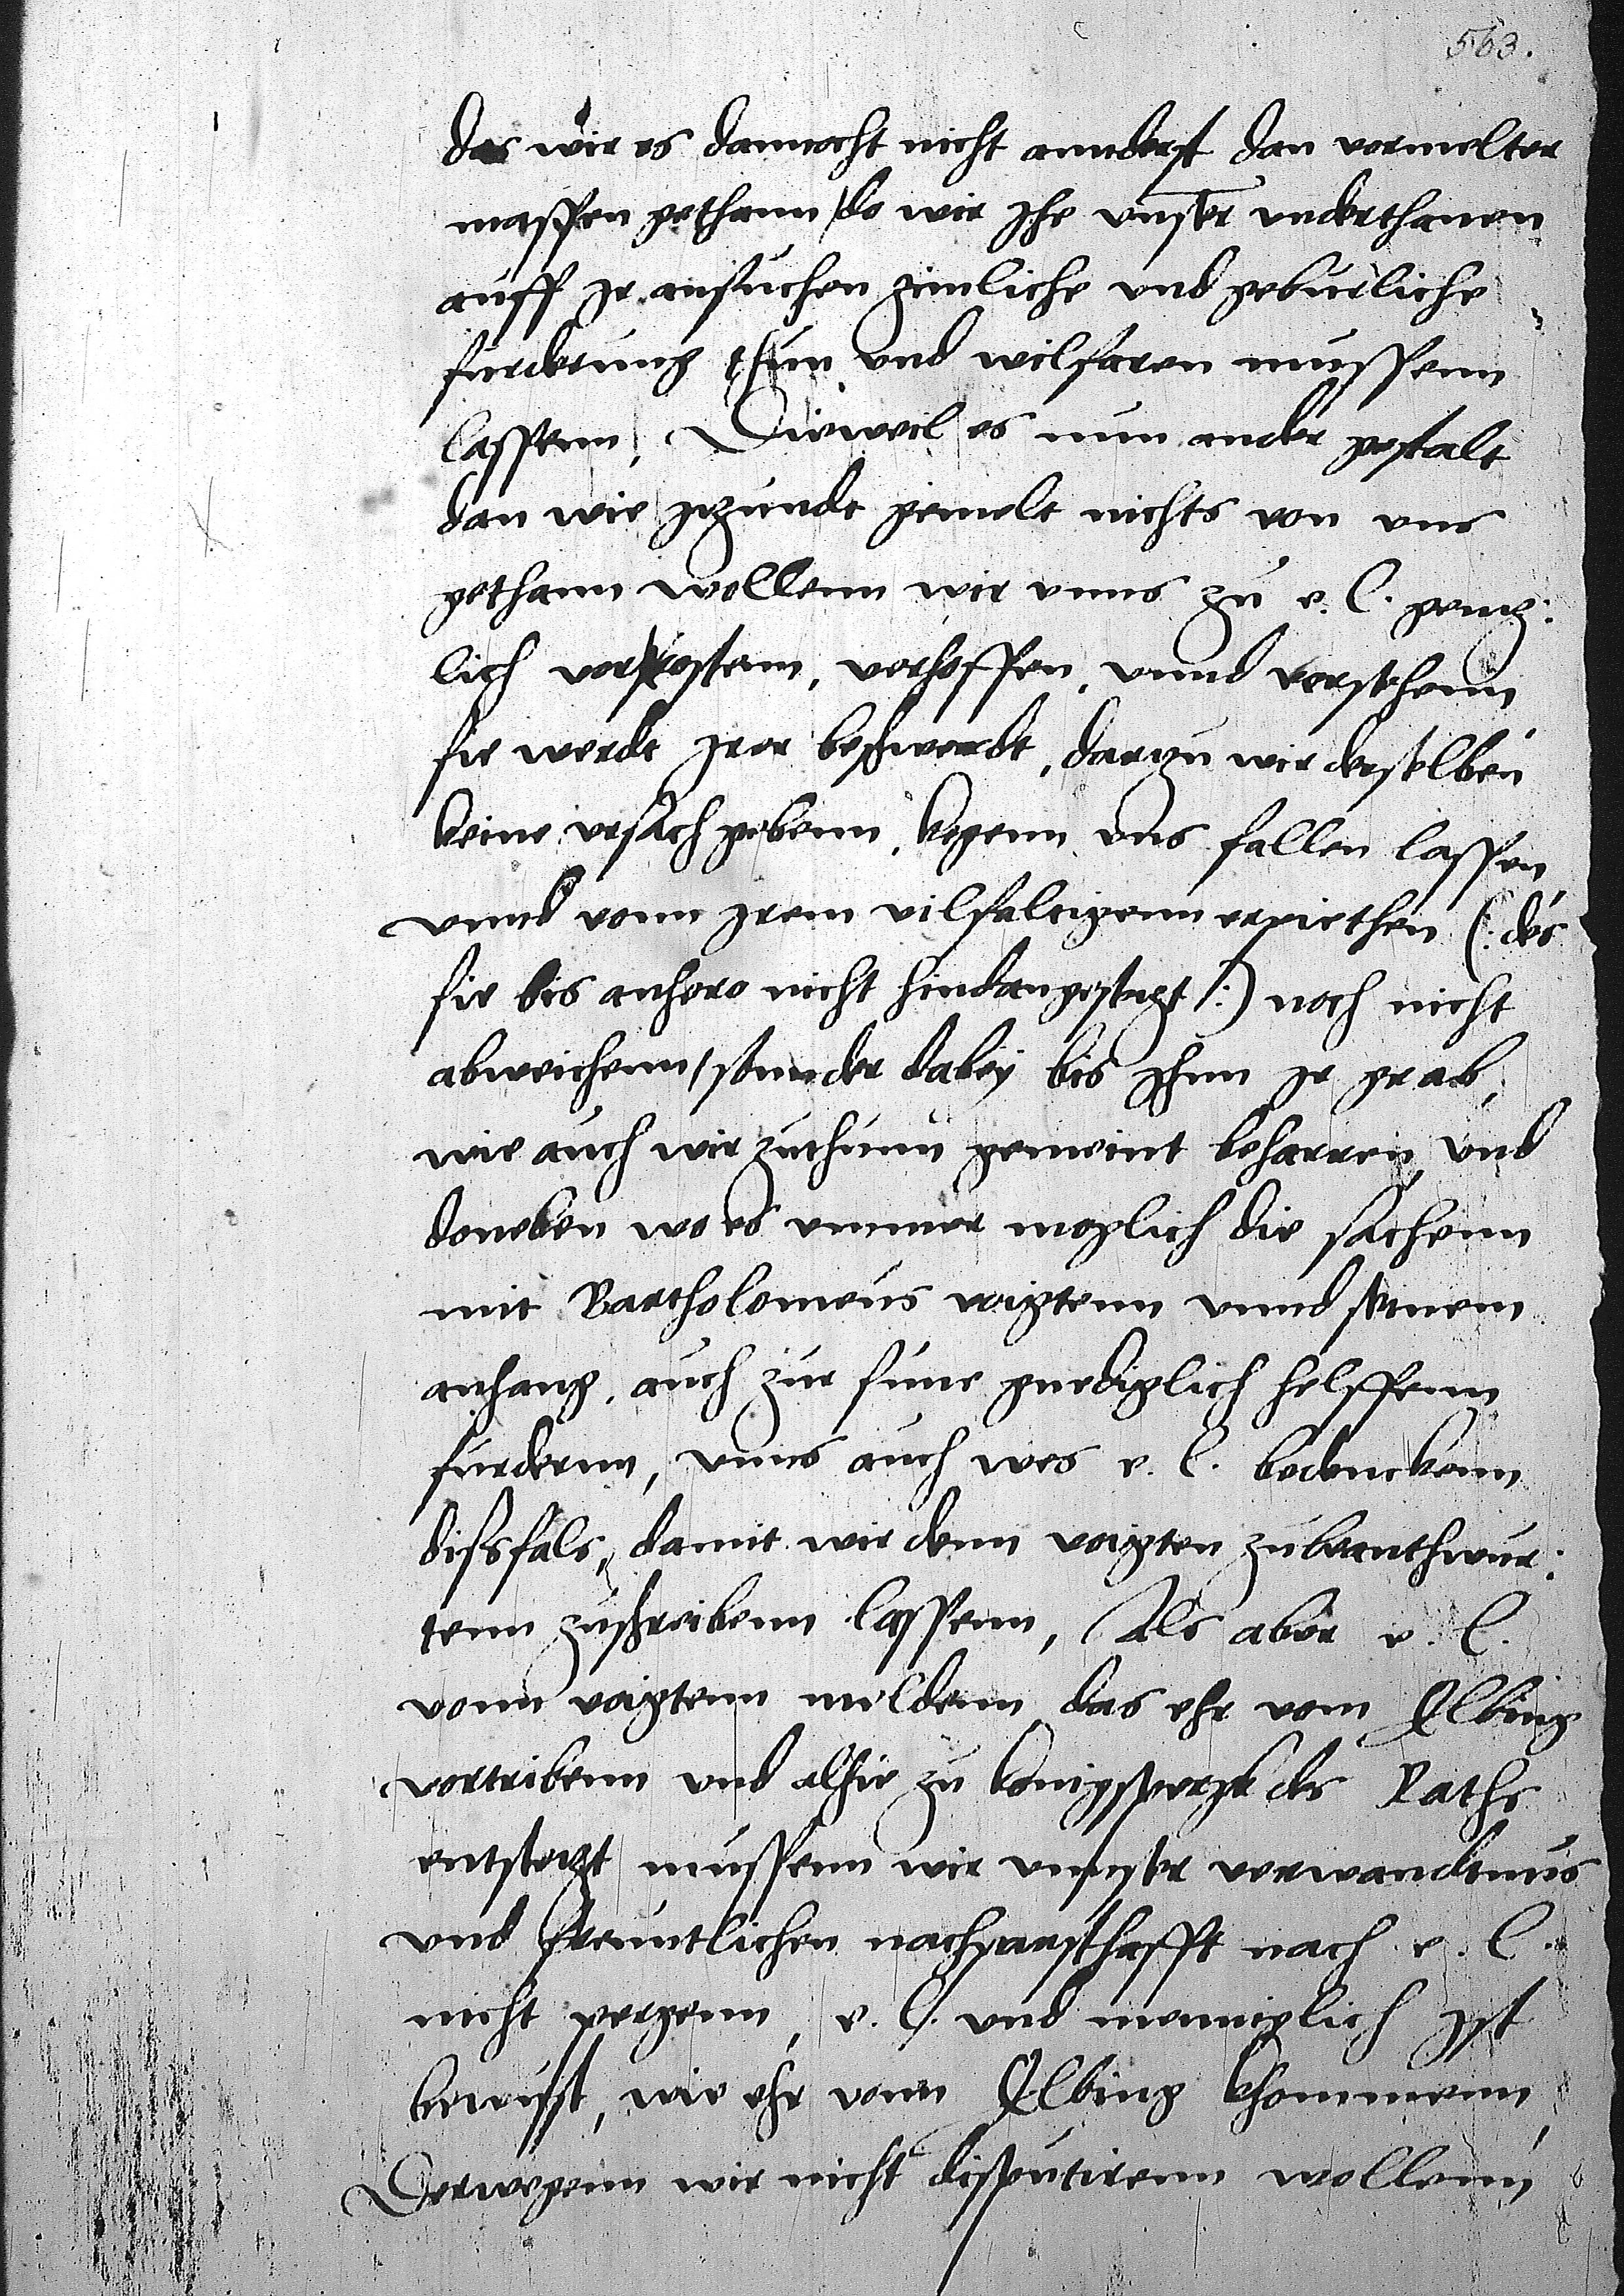 563.
das wir es dannocht nicht annderst dan vermelter
massen gethann / do wir Ihe vnser vnderthanen
auff Ir ansuchen zimliche vnd geburliche
furderung thun vnd wilfaren mussenn
lassenn, Dieweil es nun ander gestalt
dan wie Itzundt gemelt nichts von vns
gethann wollenn wir vnns zu e. l. gentz:
lich vertrostenn, verhoffen, vnnd versehenn
sie werde Irer beschwerdt, darzu wir derselben
keine vrsach gebenn, kegenn vns fallen lassen
vnnd vonn Irem vilfaltigenn erpiethen (: des
sie bis anhero nicht hindangesetzt :) noch nicht
abweichenn / sonnder dabey bis Ihnn Ir grab,
wie auch wir zuthunn gemeint beharren, vnd
doneben wo es ymmer moglich die sachenn
mit Bartholomeus voigtenn vnnd seinem
anhang, auch zur sune gnediglich helffenn
furdernn, vnns auch wes e. l. bedenckenn
dissfals, damit wir denn voigten zubeanthwur:
tenn zuschreibenn lassenn, Als aber e. l.
vonn voigtenn meldenn das ehr vom Elbing
vertribenn vnd alhie zu konigsperge des Raths
entsetzt mussenn wir vnnser verwandtnus
vnd freuntlichen nachparschafft nach e. l.
nicht pergenn, e. l. vnd menniglich Ist
bewust, wie ehr vonn Elbing khommenn,
Derwegenn wir nicht disputirenn wollenn,